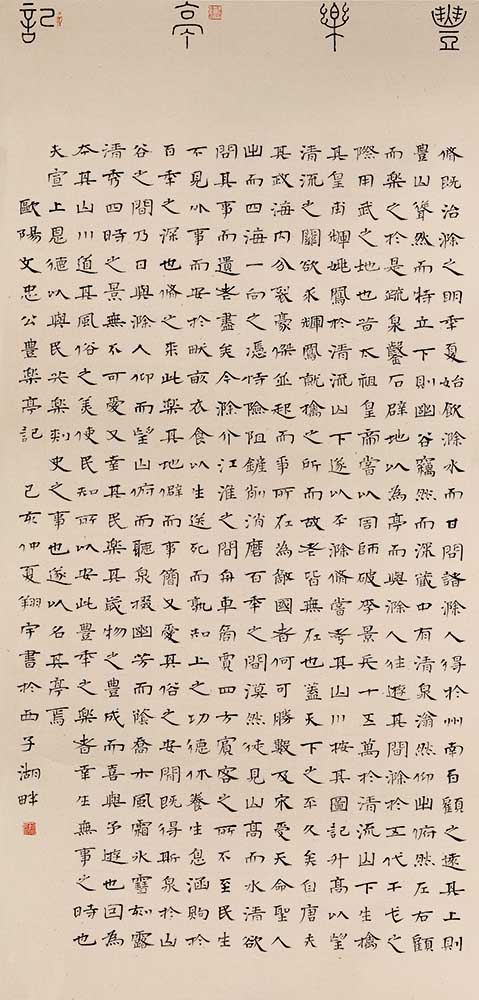 豐樂亭記
脩既治滁之明年夏始飲滁水而甘問諸滁人得於州南百顧之遠其上則
豐山聳然而特立下則幽谷竊然而深藏中有清泉滃然仰出俯然左右顧
而樂之於是疏泉鑿石辟地以為亭而與滁人往遊其間滁於五代干戈之
際用武之地也昔太祖皇帝嘗以周師破李景兵十五萬於清流山下生擒
其皇甫輝姚鳳於清流山下遂以平滁脩嘗考其山川按其圖記升高以望
清流之關欲求輝鳳就擒之所而故老皆無在也蓋天下之平久矣自唐失
其政海内分裂豪傑並起而爭所在為敵國者何可勝數及宋受天命聖人
出而四海一向之憑恃險阻鏟削消磨百年之間漠然徒見山高而水清欲
問其事而遺老盡矣今滁介江淮之間舟車商賈四方賓客之所不至民生
不見外事而安於畎畝衣食以生送死而孰知上之功德休養生息涵煦於
百年之深也脩之來此樂其地僻而事簡又愛其俗之安閒既得斯泉於山
谷之間乃日與滁人仰而望山俯而聽泉掇幽芳而蔭喬木風霜冰雪刻露
清秀四時之景無不可愛又幸其民樂其歲物之豐成而喜與予遊也因為
本其山川道其風俗之美使民知所以安此豐年之樂者幸生無事之時也
夫宣上恩德以與民共樂刺史之事也遂以名其亭焉
歐陽文忠公豐樂亭記 己亥仲夏翔宇書於西子湖畔